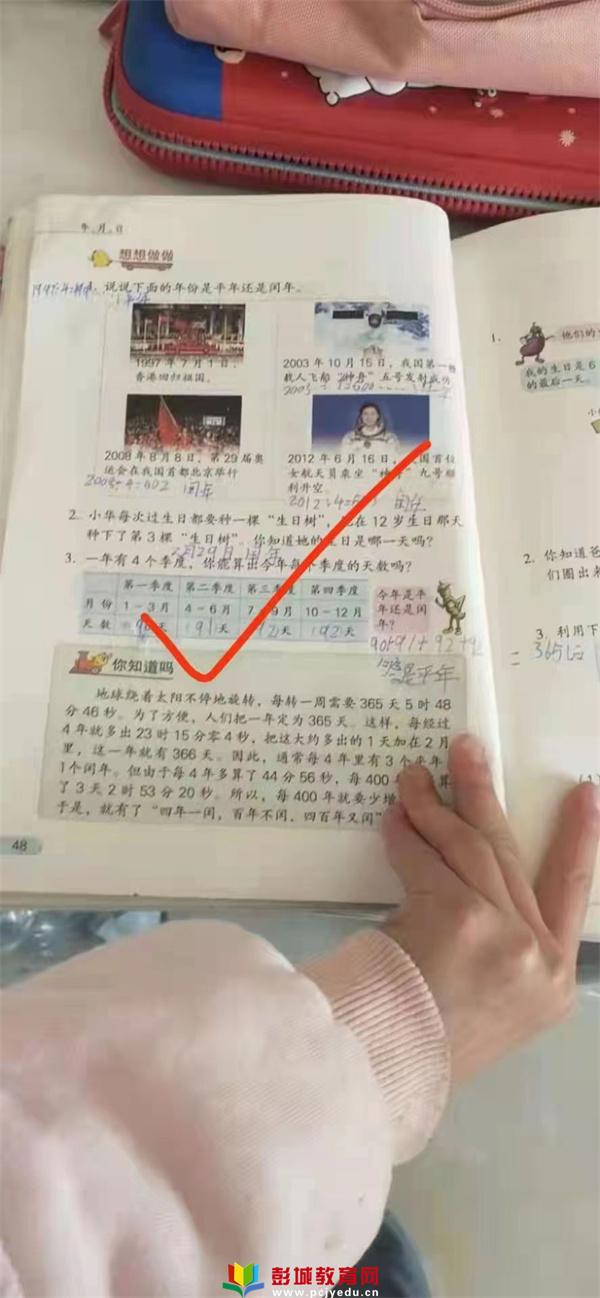 年、月、日
想想做做
1. 说说下面的年份是平年还是闰年。
1997年7月1日，
香港回归祖国。
2003年10月15日，我国第一
载人飞船“神舟”五号发射成功
2008年8月8日，第29届奥
运会在我国首都北京举行
2008÷4=502 闰年
2012年6月16日，国首位
女航天员乘坐“神舟”九号顺
利升空。
2012÷4=503 闰年
2. 小华每次过生日都要种一棵“生日树”，在12岁生日那天
种下了第3棵“生日树”。你知道她的生日是哪一天吗？
2月29日 闰年
3. 一年有4个季度，你能算出今年每个季度的天数吗？
第一季度 第二季度 第三季度 第四季度
月份 1-3月 4-6月 7-9月 10-12月
天数 90天 91天 92天 92天
今年是平
年还是闰
年？
90+91+92+92
是平年
你知道吗
地球绕着太阳不停地旋转，每转一周需要365天5时48
分46秒。为了方便，人们把一年定为365天。这样，每经过
4年就多出23时15分零4秒，把这大约多出的1天加在2月
里，这一年就有366天。因此，通常每4年里有3个平年
1个闰年。但由于每4年多算了44分56秒，每400年算
了3天2时53分20秒。所以，每400年就要少增
于是，就有了“四年一闰，百年不闰，四百年又闰”
48
1.
他们的
我的生日是6
的最后一天。
2. 你知道爸
们圈出来
3. 利用下
365
(1)
彭城教育网
www.pcjyedu.cn